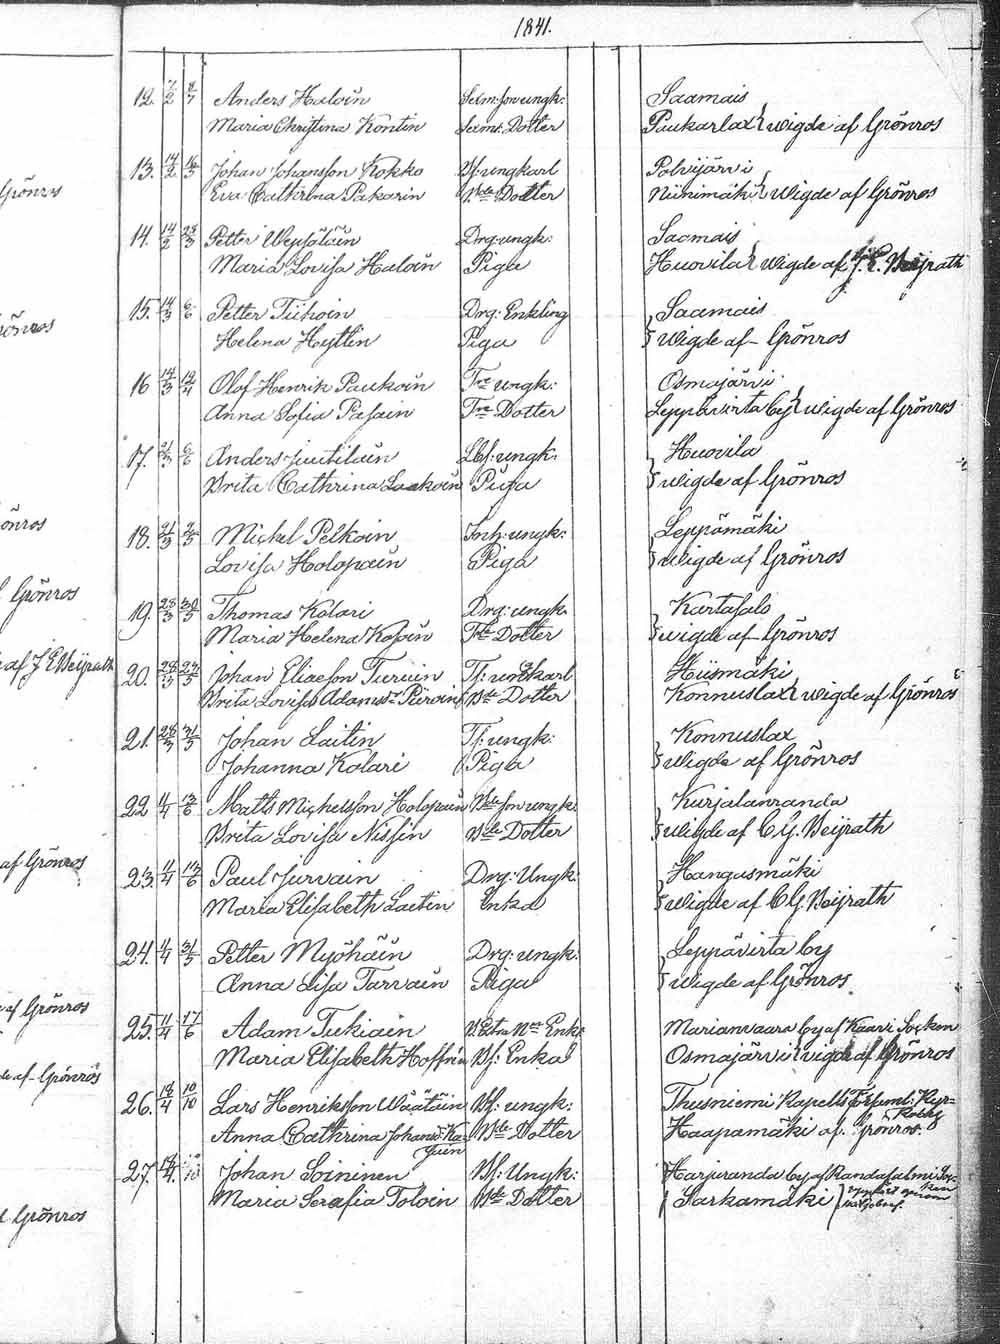 1841.
12. 7/2 8/7 Anders Haloin Sexm: son ungk: Saamais
Maria Christina Kontin Sexms. Dotter Paukarlax wigde af Grönros
13. 14/2 16/5 Johan Johansson Kokko Bf: ungkarl Polvijärvi
Eva Cathrina Pakarin Bde Dotter Niinimäki wigde af Grönros
14. 14/2 28/3 Petter Wepsäläin Drg: ungk: Saamais
Maria Lovisa Haloin Piga Huovila wigde af J. E. Weijrath
15. 14/3 6/6 Petter Tiihoin Drg: Enkling Saamais
Helena Hyttin Piga wigde af Grönros
16 14/3 12/4 Olof Henrik Paukoin Tre ungk: Osmajärvi
Anna Sofia Pasain Tre Dotter Leppävirta by wigde af Grönros
17. 21/3 6/6 Anders Juutilain Lbf: ungk: Huovila
Brita Cathrina Laakoin Piga wigde af Grönros
18. 21/3 2/5 Michel Pelkoin Inh: ungk: Leppämäki
Lovisa Holopain Piga wigde af Grönros
19. 28/3 30/5 Thomas Kolari Drg: ungk. Kartasalo
Maria Helena Kojoin Tde Dotter wigde af Grönros
20. 28/3 Johan Eliaeson Turuin Tf: ungkarl Hiismäki
Brita Lovisa Adamsdr Piiroin Bde Dotter Konnuslax wigde af Grönros
21. 28/3 31/5 Johan Laitin Tf: ungk: Konnuslax
Johanna Kolari Piga wigde af Grönros
22 4/4 13/6 Matts Michelsson Holopain Bde son ungk: Kurjalanranda
Brita Lovisa Nissin Bde Dotter wigde af C G. Weijrath
23. 4/4 Paul Jurvain Drg: Ungk: Hangusmäki
Maria Elisabeth Laitin Enka wigde af C G. Weijrath
24. 4/4 31/5 Petter Myöhäin Drg: ungk: Leppävirta by
Anna Lisa Tarvain Piga wigde af Grönros
25. 11/4 17/6 Adam Tukiain Enkl Marianvaara by af Kaavi Socken
Maria Elisabeth Hoffrin Bf: Enka Osmajärvi wigde af Grönros
26. 18/4 10/10 Lars Henriksson Wäätäin Bf: ungk: Thusniemi Kapells Förfaml: Kyr-
Anna Cathrina Johansdr Ka- Bde Dotter Haapamäki af Grönros.
27. 18/4 Johan Soininen Bf: Ungk: Harjuranda by af Randasalmi Soc-
Maria Serafia Toloin Bde Dotter Sarkamäki